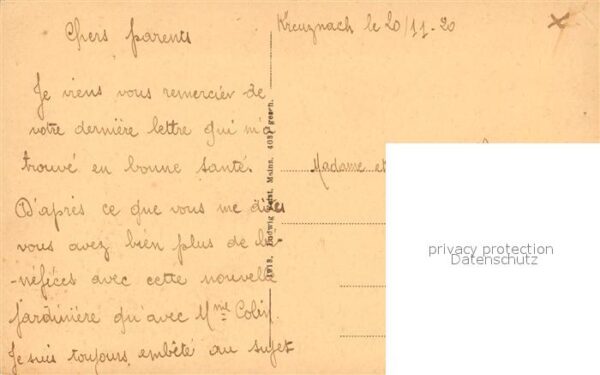 Chers parents
Je viens vous remercier de
votre dernière lettre qui m'a
trouvé en bonne santé.
D'après ce que vous me dites
vous avez bien plus de bé-
-néfices avec cette nouvelle
jardinière qu'avec Mme Colin.
Je suis toujours embêté au sujet
Kreuznach le 20/11-20
Madame et
1918. Ludwig Feist, Mainz. gesch.
privacy protection
Datenschutz